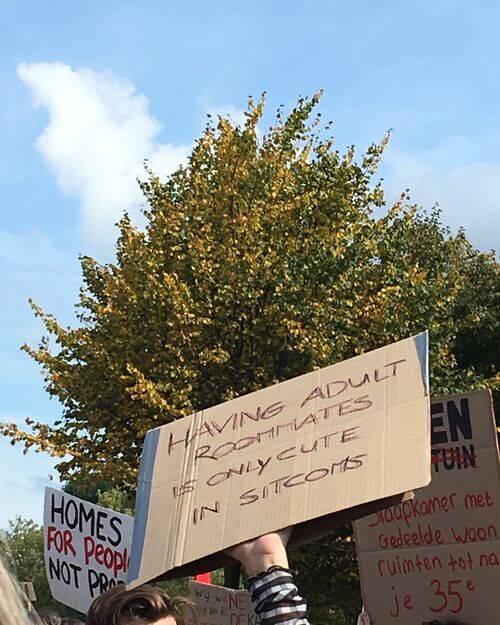 HAVING ADULT
ROOMMATES
IS ONLY CUTE
IN SITCOMS
HOMES
FOR PeoPl
NOT PRO
EN
TUIN
Slaapkamer met
Gedeelde woon
ruimten tot na
je 35e